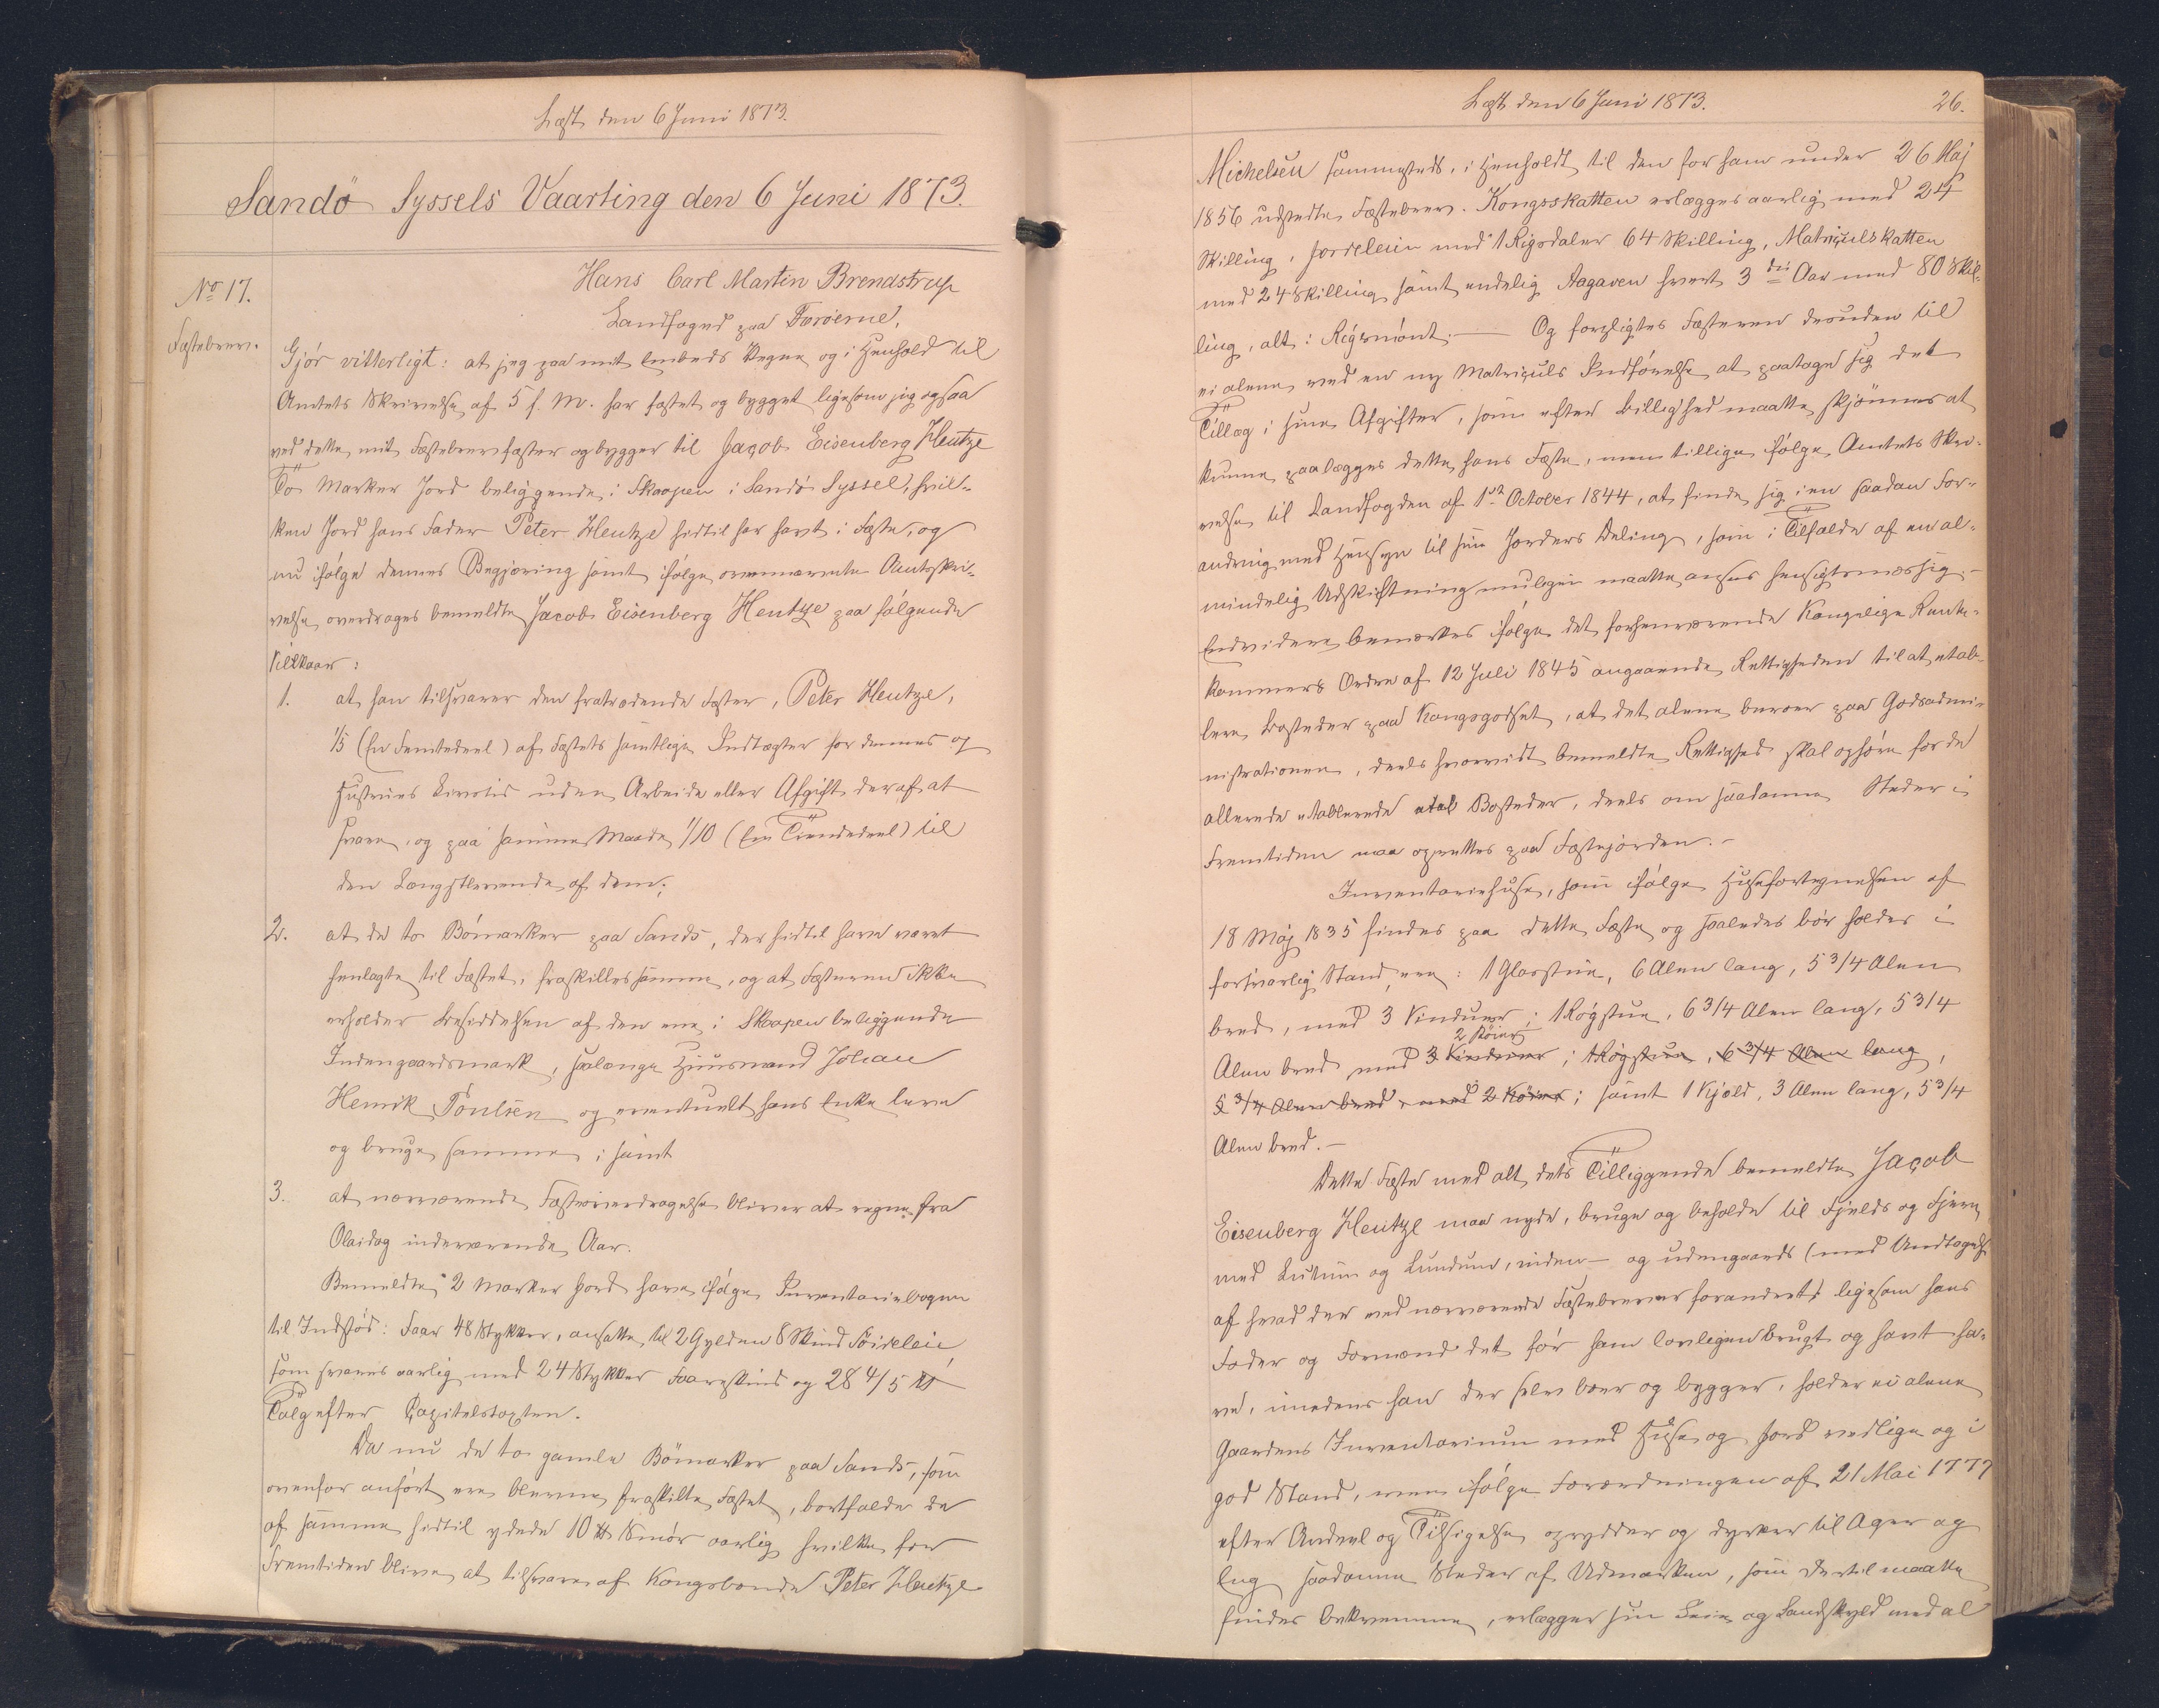 Læst den 6 Juni 1873.
Sandö Syssels Vaarting den 6 Juni 1873.
No 17.
Fæstebrev.
Hans Carl Martin Brendstrup
Landfoged paa Færöerne,
Gjör vitterligt: at jeg paa mit Embeds Vegne og i Henhold til
Amtets Skrivelse af 5 f. M. har fæstet og bygget ligesom jeg ogsaa
ved dette mit Fæstebrev fæster og bygger til Jacob Eisenberg Hentze
To Marker Jord beliggende i Skaapen i Sandö Syssel, hvil-
ken Jord hans Fader Peter Hentze hidtil har havt i Fæste, og
nu ifölge dennes Begjæring samt ifölge ovennævnte Amtsskri-
velse overdrages bemeldte Jacob Eisenberg Hentze paa fölgende
Vilkaar:
1. at han tilsvarer den fratrædende Fæster, Peter Hentze,
1/5 (En Femtedeel) af Fæstets samtlige Indtægter for dennes og
Hustrues Livstid uden Arbeide eller Afgift deraf at
svare, og paa samme Maade 1/10 (En Tiendedeel) til
den Længstlevende af dem;
2. at de to Bömarker paa Sands, der hidtil have været
henlagte til Fæstet, fraskilles samme, og at Fæsteren ikke
erholder Besiddelsen af den ene i Skaapen beliggende
Indengaardsmark, saalænge Huusmand Johan
Henrik Poulsen og eventuelt hans Enke leve
og bruge samme; samt
3. at nærværende Fæsteoverdragelse bliver at regne fra
Olaidag indeværende Aar.
Bemeldte 2 Marker Jord have ifölge Inventariebogen
til Indstöd: Faar 48 Stykker, ansatte til 2 Gylden 8 Skind Söideleie,
som svares aarlig med 24 Stykker Faareskind og 28 4/5 ℔
Talg efter Capitelstaxten.
Da nu de to gamle Bömarker paa Sands, som
ovenfor anfört ere blevne fraskilte Fæstet, bortfalde de
af samme hidtil ydede 10 ℔ Smör aarlig hvilke for
Fremtiden blive at tilsvare af Kongsbonde Peter Hentze
Læst den 6 Juni 1873.
26.
Michelsen sammesteds, i Henholdt til den for ham under 26 Maj
1856 udstedte Fæstebrev. Kongsskatten erlægges aarlig med 24
Skilling, Jordeleien med 1 Rigsdaler 64 Skilling, Matriculskatten
med 24 Skilling samt endelig Aagaven hvert 3die Aar med 80 Skil-
ling, alt i Rigsmönt. — Og forpligtes Fæsteren desuden til
ei alene ved en ny Matriculs Indförelse at paatage sig det
Tillæg i sine Afgifter, som efter Billighed maatte skjönnes at
kunne paalægges dette hans Fæste, men tillige ifölge Amtets Skri-
velse til Landfogden af 1ste October 1844, at finde sig i en saadan For-
andring med Hensyn til sin Jorders Deling, som i Tilfælde af en al-
mindelig Udskiftning muligen maatte ansees hensigtsmæssig. -
Endvidere bemærkes ifölge det forhenværende Kongelige Rente-
kammers Ordre af 12 Juli 1845 angaaende Rettigheden til at etab-
lere Bosteder paa Kongsgodset, at det alene beroer paa Godsadmi-
nistrationen, deels hvorvidt bemeldte Rettighed skal ophöre for de
allerede etablerede etab Bosteder, deels om saadanne Steder i
Fremtiden maa oprettes paa Fæstejorden. -
Inventariehuse, som ifölge Husefortegnelsen af
18 Maj 1835 findes paa dette Fæste og saaledes bör holdes i
forsvarlig Stand, ere: 1 Glasstue, 6 Alen lang, 5 3/4 Alen
bred, med 3 Vinduer; 1 Rögstue, 6 3/4 Alen lang, 5 3/4
2 Köier
Alen bred med 3 Vinduer; 1 Rögstue, 6 3/4 Alen lang,
5 3/4 Alen bred, med 2 Köier; samt 1 Kjæld, 3 Alen lang, 5 3/4
Alen bred. -
Dette Fæste med alt dets Tilliggende bemeldte Jacob
Eisenberg Hentze maa nyde, bruge og beholde til Fjelds og Fjære
med Lutum og Lundum, inden- og udengaards (med Undtagelse
af hvad der ved nærværende Fæstebrev er forandret) ligesom hans
Fader og Formænd det för ham lovligen brugt og havt ha-
ve, imedens han der selv boer og bygger, holder ei alene
Gaardens Inventarium med Huse og Jord vedlige og i
god Stand, men ifölge Forordningen af 21 Mai 1777
efter Andeel og Tilsigelse oprydder og dyrker til Ager og
Eng saadanne Steder af Udmarken, som dertil maatte
findes bekvemme, erlægger sin Leie og Landskyld med al